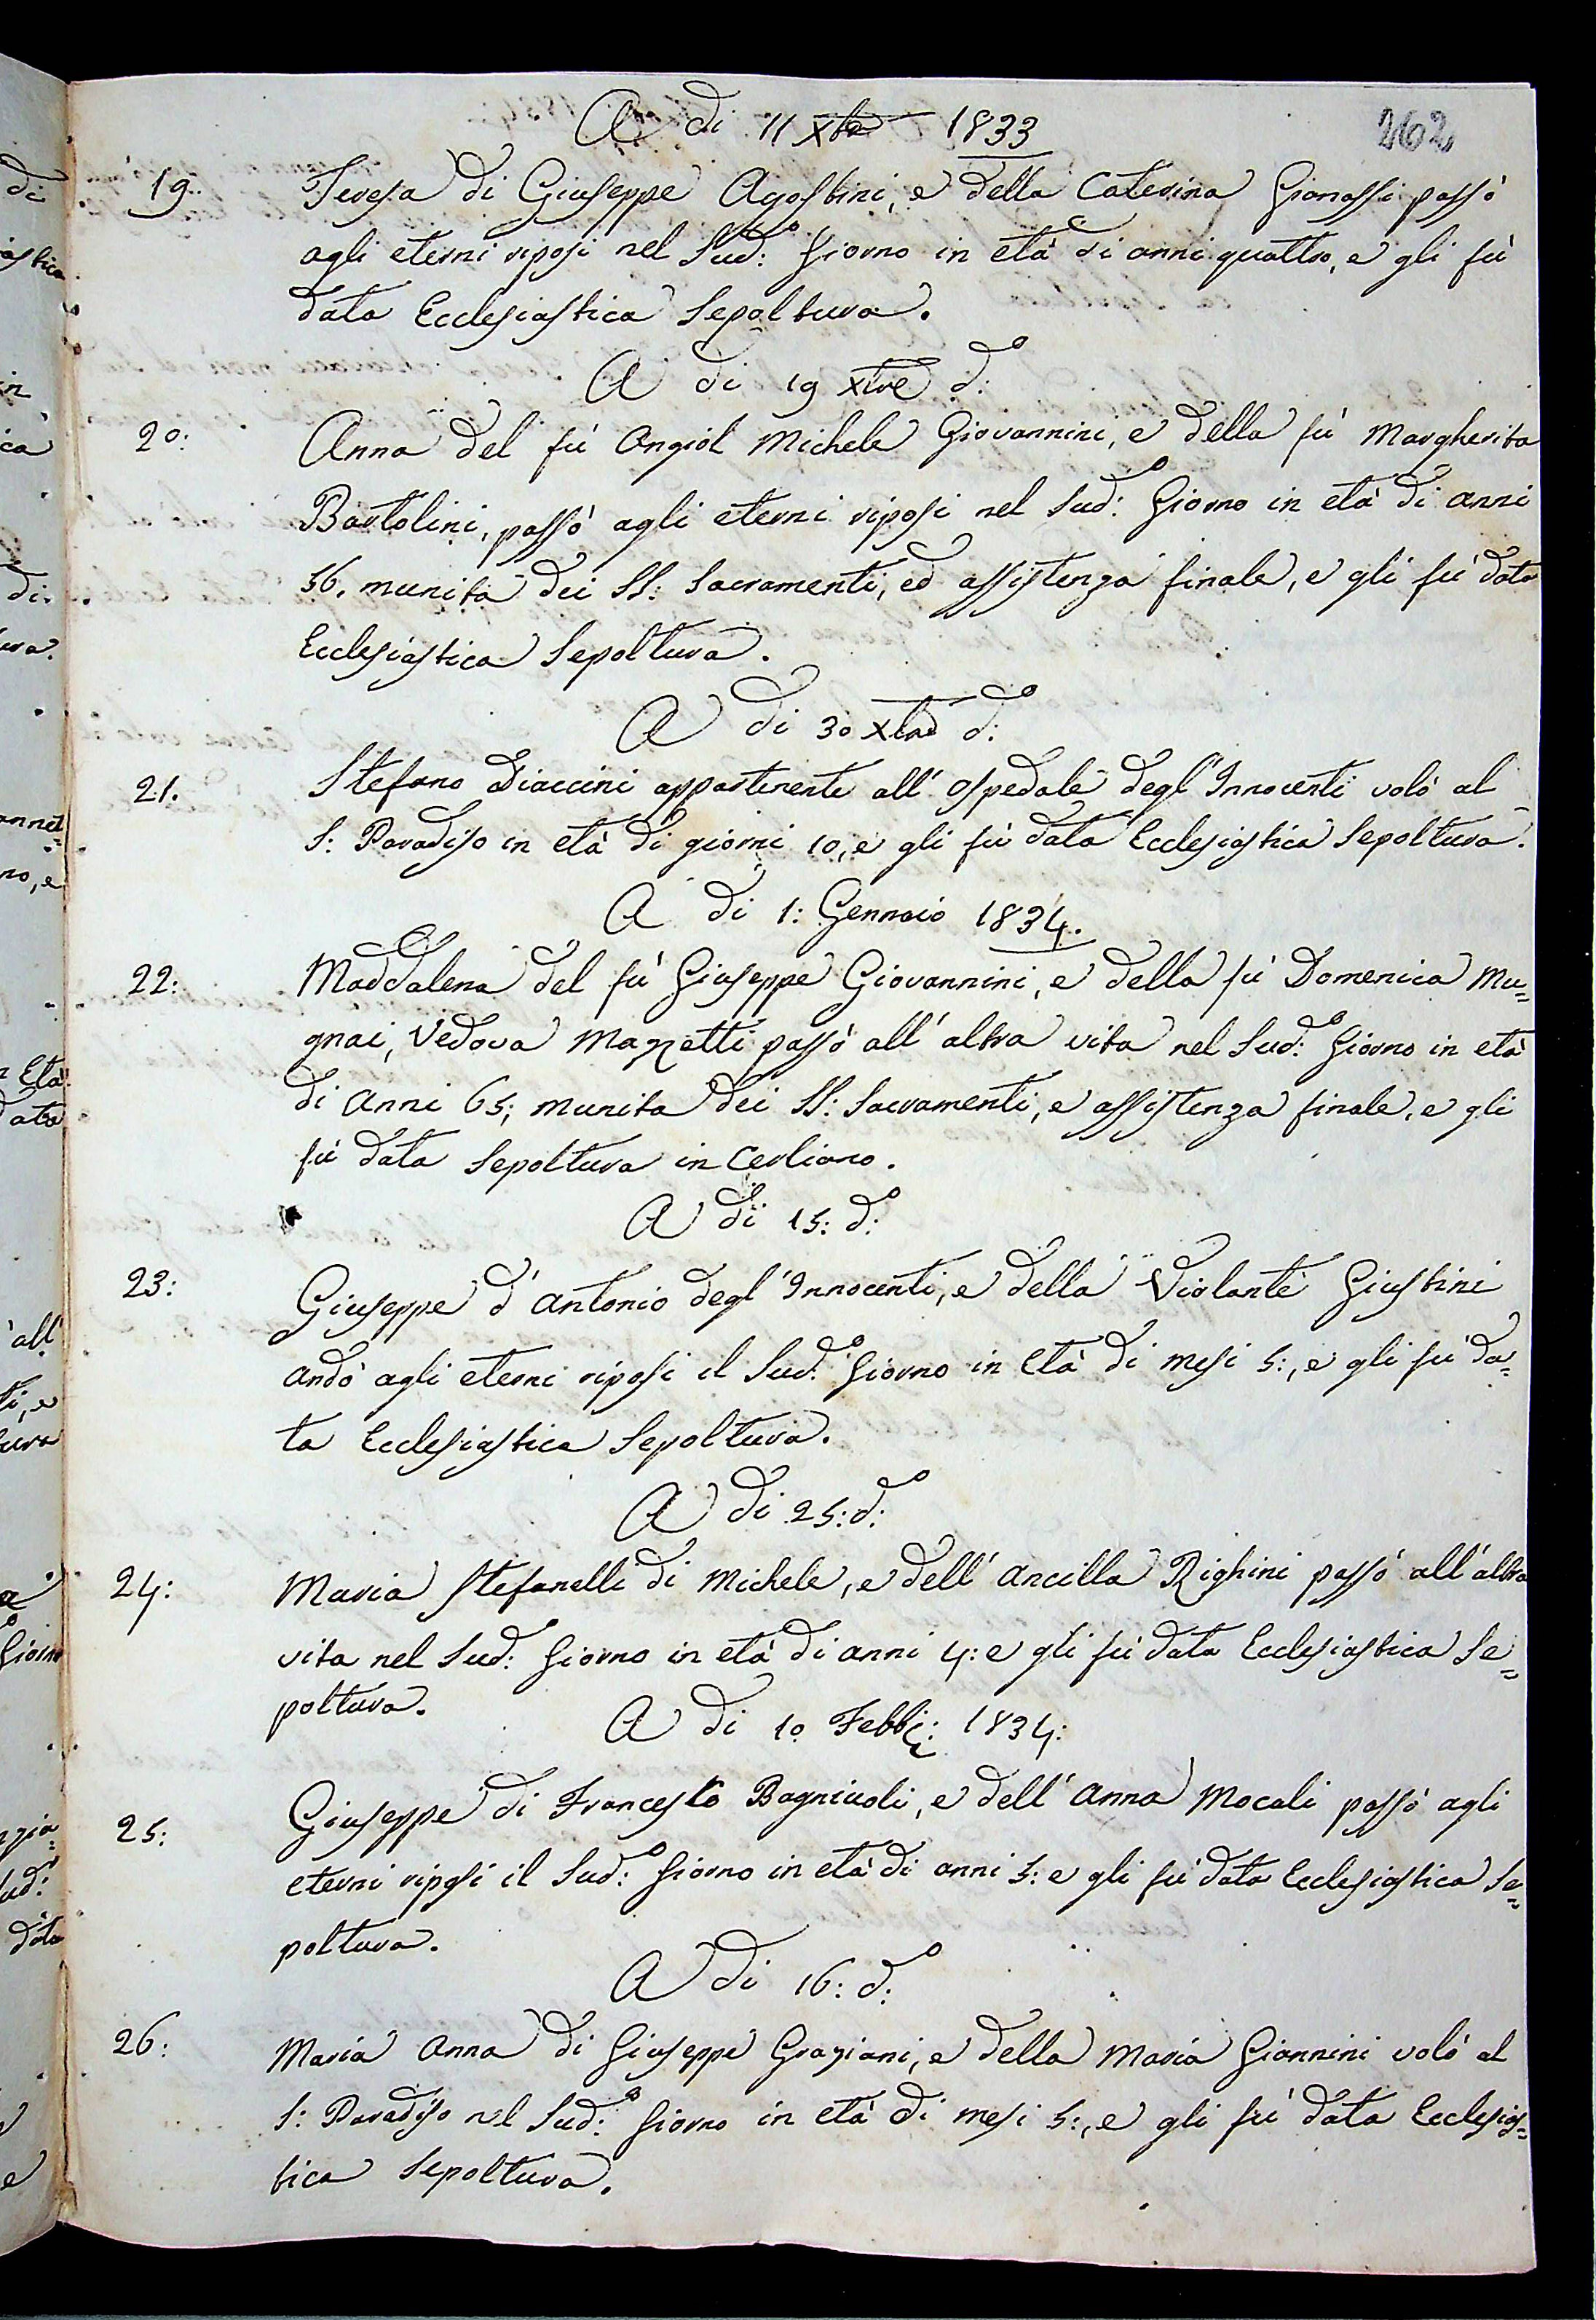 A di 11 Xbre 1833
262
19. Teresa di Giuseppe Agostini, e della Caterina Gianassi passò
agli eterni riposi nel Sud:º Giorno in età di anni quattro, e gli fù
data Ecclesiastica Sepoltura.
A di 19 Xbre d:º
20: Anna del fù Angiol Michele Giovannini, e della fù Margherita
Bartolini, passò agli eterni riposi nel Sud:º Giorno in età di anni
56. munita dei SS: Sacramenti, ed assistenza finale, e gli fù data
Ecclesiastica Sepoltura.
A di 30 Xbre d:º
21. Stefano Diaccini appartenente all' Ospedale degl' Innocenti volò al
S: Paradiso in età di giorni 10, e gli fù data Ecclesiastica Sepoltura.
A di 1: Gennaio 1834.
22: Maddalena del fù Giuseppe Giovannini, e della fù Domenica Mu=
gnai, Vedova Mazzetti passò all' altra vita nel Sud:º Giorno in età
di Anni 65; munita dei SS: Sacramenti, e assistenza finale, e gli
fù data Sepoltura in Cerliano.
A di 15: d:º
23: Giuseppe d' Antonio degl' Innocenti, e della Violante Giustini
andò agli eterni riposi il Sud:º Giorno in Età di mesi 5:, e gli fù da=
ta Ecclesiastica Sepoltura.
A di 25: d:º
24: Maria Stefanelli di Michele, e dell' Ancilla Righini passò all' altra
vita nel Sud:º Giorno in età di anni 4: e gli fù data Ecclesiastica Se=
poltura.
A di 10 Febb: 1834:
25: Giuseppe di Francesco Bagniuoli, e dell' Anna Mocali passò agli
eterni riposi il Sud:º Giorno in età di anni 5: e gli fù data Ecclesiastica Se=
poltura.
A di 16: d:º
26: Maria Anna di Giuseppe Graziani, e della Maria Giannini volò al
S: Paradiso nel Sud:º Giorno in età di mesi 5:, e gli fù data Ecclesias=
tica Sepoltura.